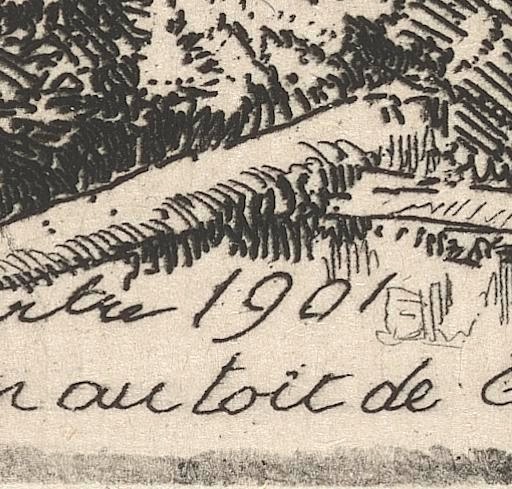 rtre 1901
n au toit de